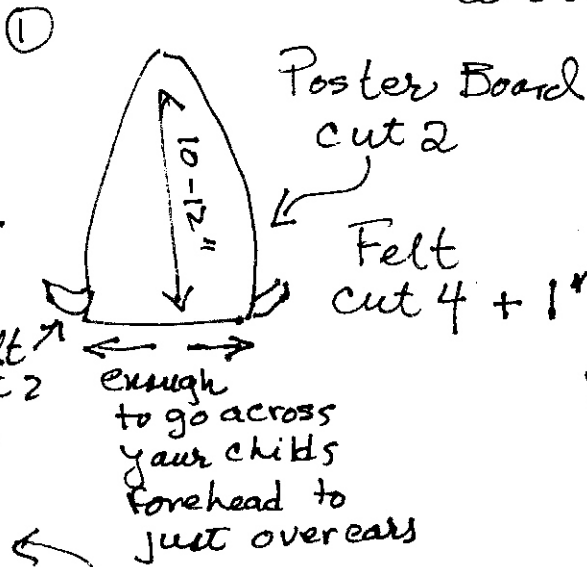 ①
Poster Board
cut 2
10-12"
Felt
cut 4 + 1"
2
enough
to go across
your childs
forehead to
just over ears